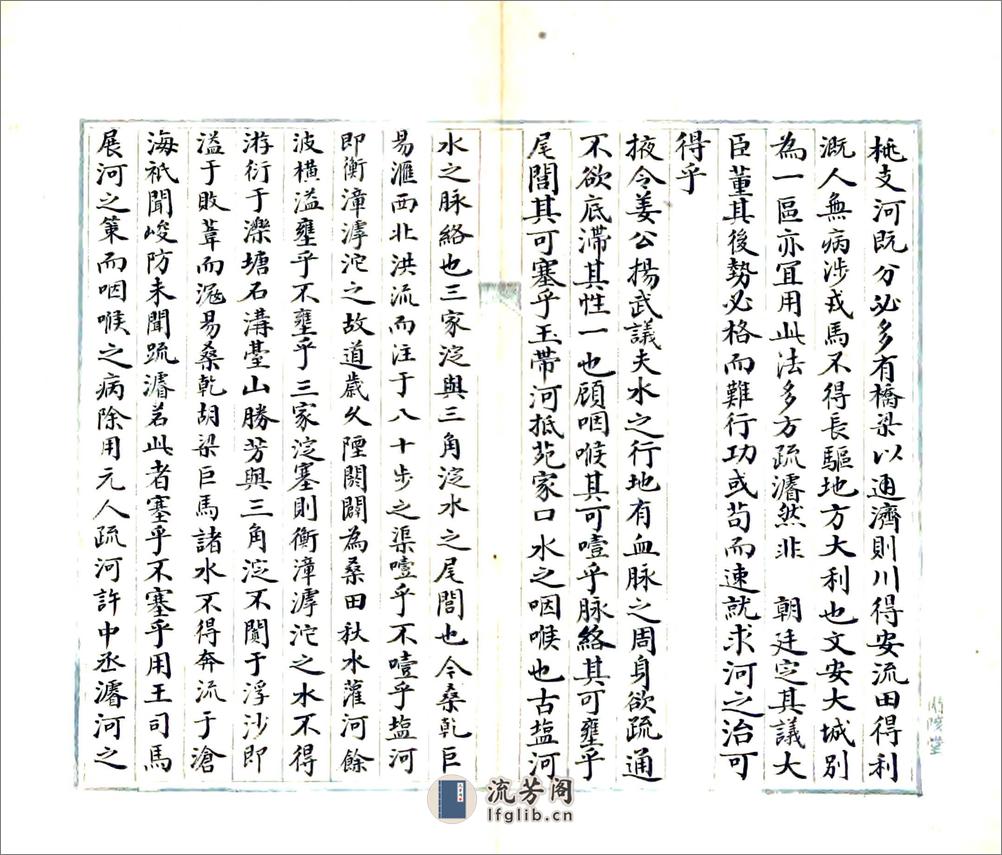 桃支河既分必多有橋梁以通濟則川得安流田得利
溉人無病涉戎馬不得長驅地方大利也文安大城別
為一區亦宜用此法多方疏濬然非　朝廷定其議大
臣董其後勢必格而難行功或苟而速就求河之治可
得乎
掖令姜公揚武議夫水之行地有血脉之周身欲疏通
不欲底滯其性一也顧咽喉其可噎乎脉絡其可壅乎
尾閭其可塞乎玉帶河抵苑家口水之咽喉也古塩河
水之脉絡也三家淀與三角淀水之尾閭也今桑乾巨
易滙西北洪流而注于八十步之渠噎乎不噎乎塩河
即衡漳滹沱之故道歲久堙閼闢為桑田秋水灌河餘
波横溢壅乎不壅乎三家淀塞則衡漳滹沱之水不得
游衍于濼塘石溝臺山勝芳與三角淀不闐于浮沙即
溢于敗葦而滱易桑乾胡梁巨馬諸水不得奔流于滄
海祇聞峻防未聞疏濬若此者塞乎不塞乎用王司馬
展河之策而咽喉之病除用元人疏河許中丞濬河之
流芳阁
lfglib.cn